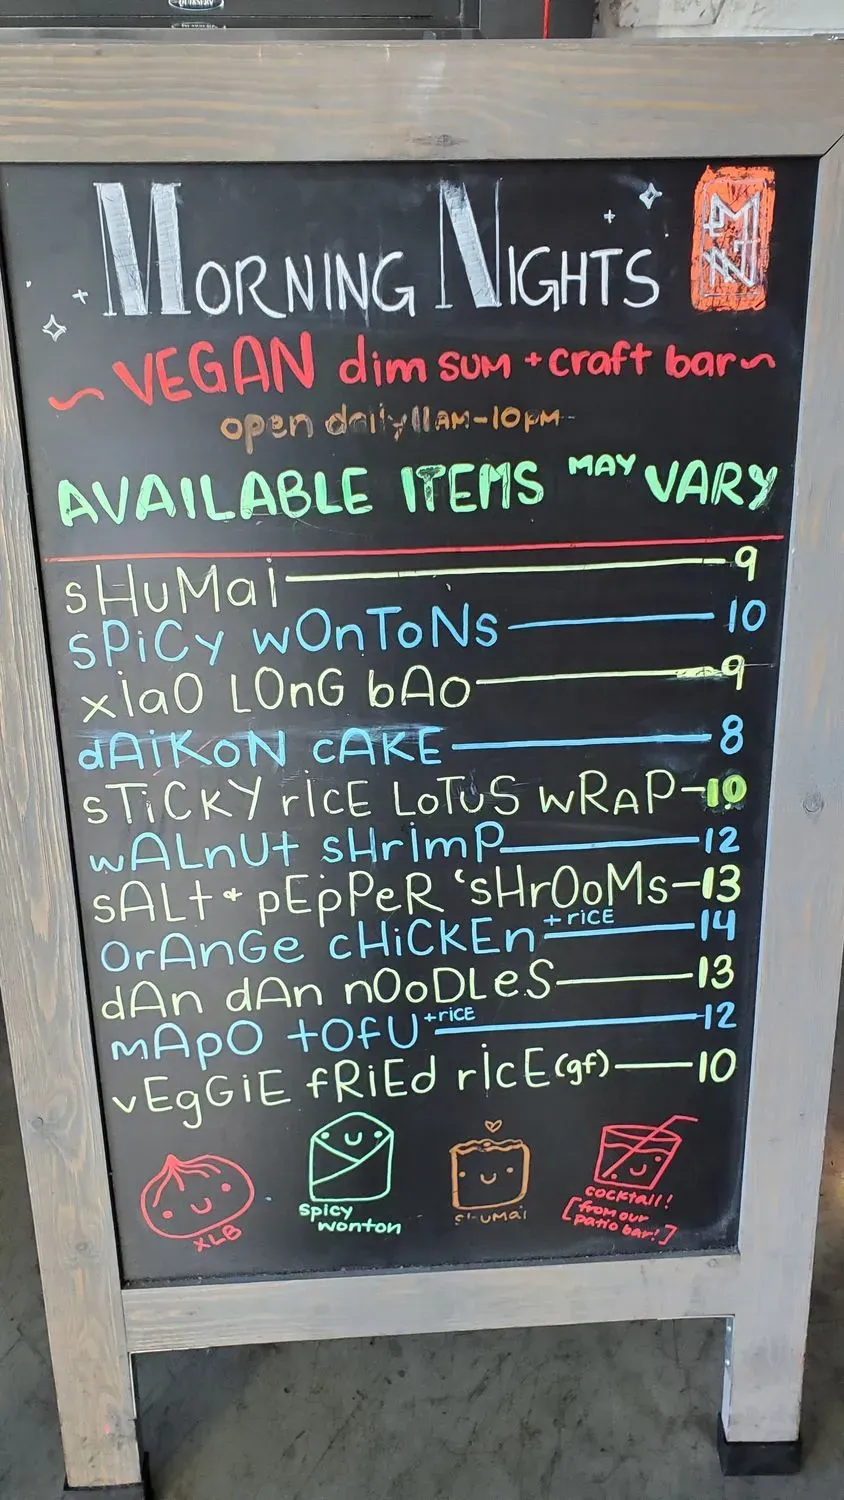 MORNING NIGHTS
~ VEGAN dim sum + craft bar ~
open daily 11AM-10PM
AVAILABLE ITEMS MAY VARY
sHuMai 9
sPiCy wOnToNs 10
xiaO LOnG bAo 9
dAiKoN cAKE 8
sTiCKY rIcE LoTuS wRAP 10
wALnUt sHrImP 12
sALt + pEpPeR 'sHrOoMs 13
OrAnGe cHiCKEn + rICE 14
dAn dAn nOoDLeS 13
mApO tOfU + rICE 12
vEgGiE fRiEd rIcE (gf) 10
XLB
spicy
wonton
sHUMai
cocktail!
[from our
patio bar!]